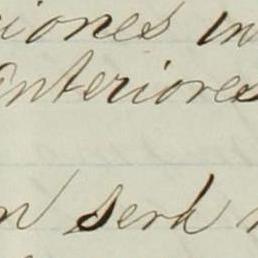 iones in
anteriores
n será n